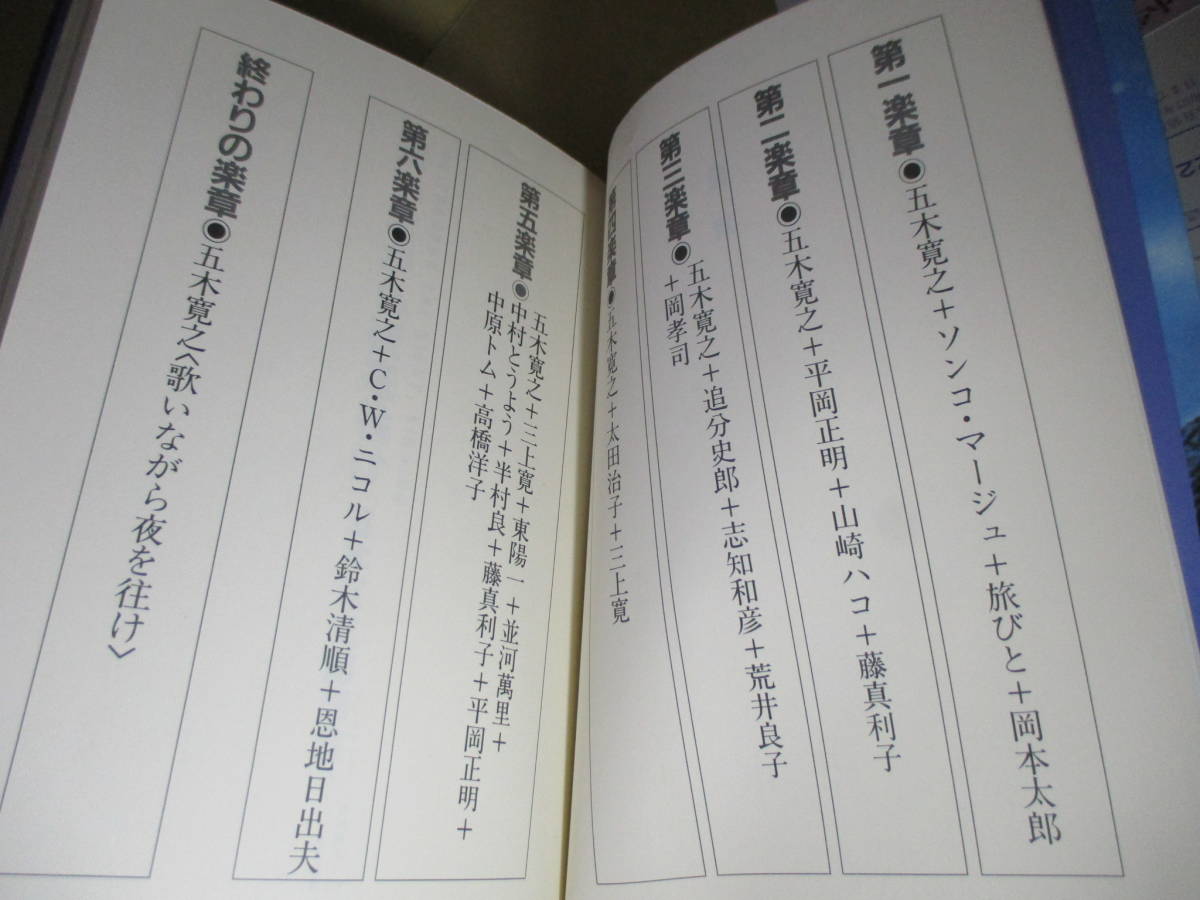 第一楽章◉五木寛之+ソンコ・マージュ+旅びと+岡本太郎
第二楽章◉五木寛之+平岡正明+山崎ハコ+藤真利子
第三楽章◉五木寛之+追分史郎+志知和彦+荒井良子
+岡孝司
第四楽章◉五木寛之+太田治子+三上寛
第五楽章◉五木寛之+三上寛+東陽一+並河萬里+
中村とうよう+半村良+藤真利子+平岡正明+
中原トム+高橋洋子
第六楽章◉五木寛之+C・W・ニコル+鈴木清順+恩地日出夫
終わりの楽章◉五木寛之〈歌いながら夜を往け〉